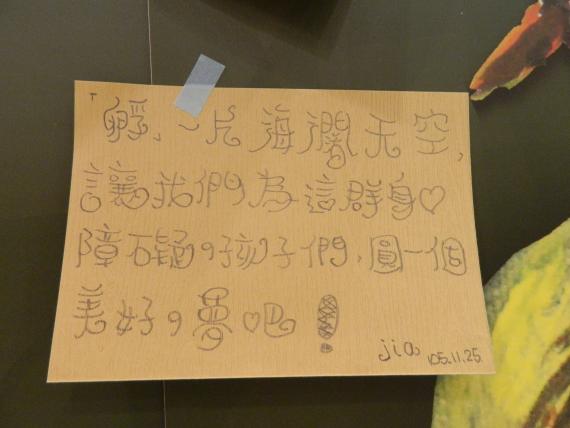 「孵」一片海濶天空，
讓我們為這群身♡
障礙の孩子們，圓一個
美好の夢♡吧！
jia 105.11.25